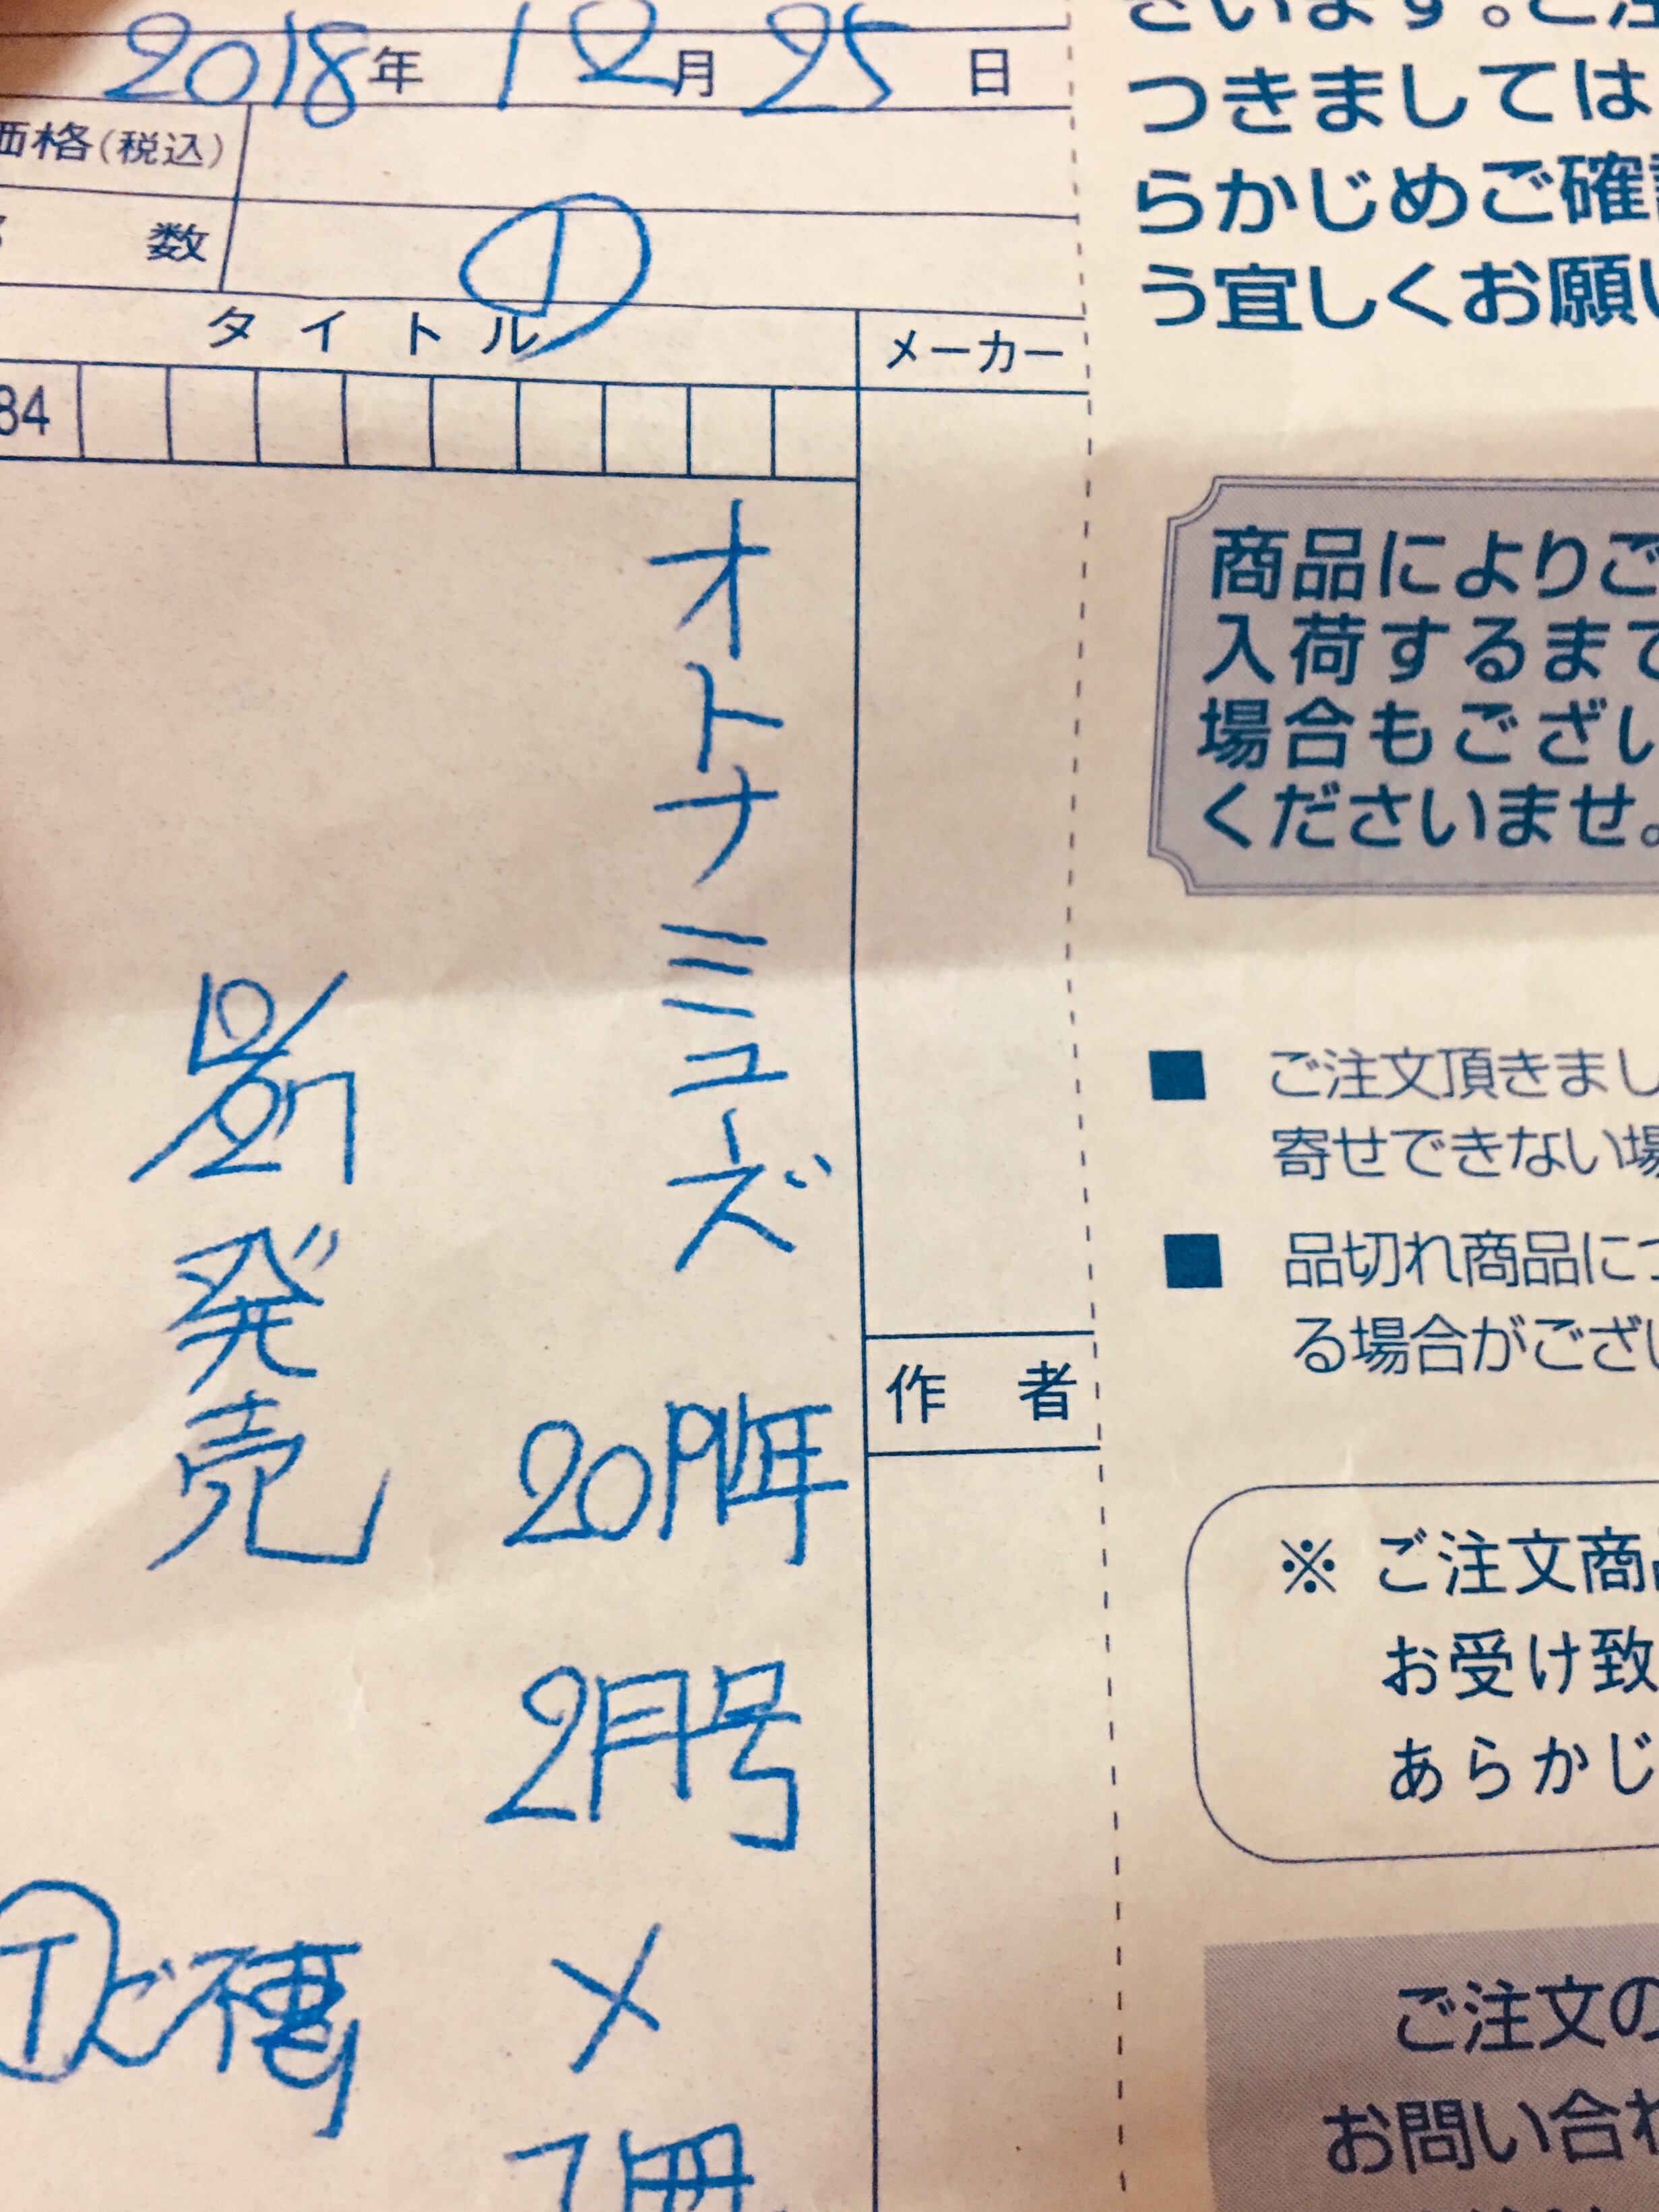 2018年12月25日
価格(税込)
数
①
タイトル
メーカー
84
オトナミューズ
2019年
2月号
×
1冊
12/27発売
作者
つきましては
らかじめご確認
う宜しくお願い
商品によりご
入荷するまで
場合もござい
くださいませ。
■ ご注文頂きまし
寄せできない場
■ 品切れ商品につ
る場合がござい
※ ご注文商品
お受け致
あらかじ
ご注文の
お問い合わ